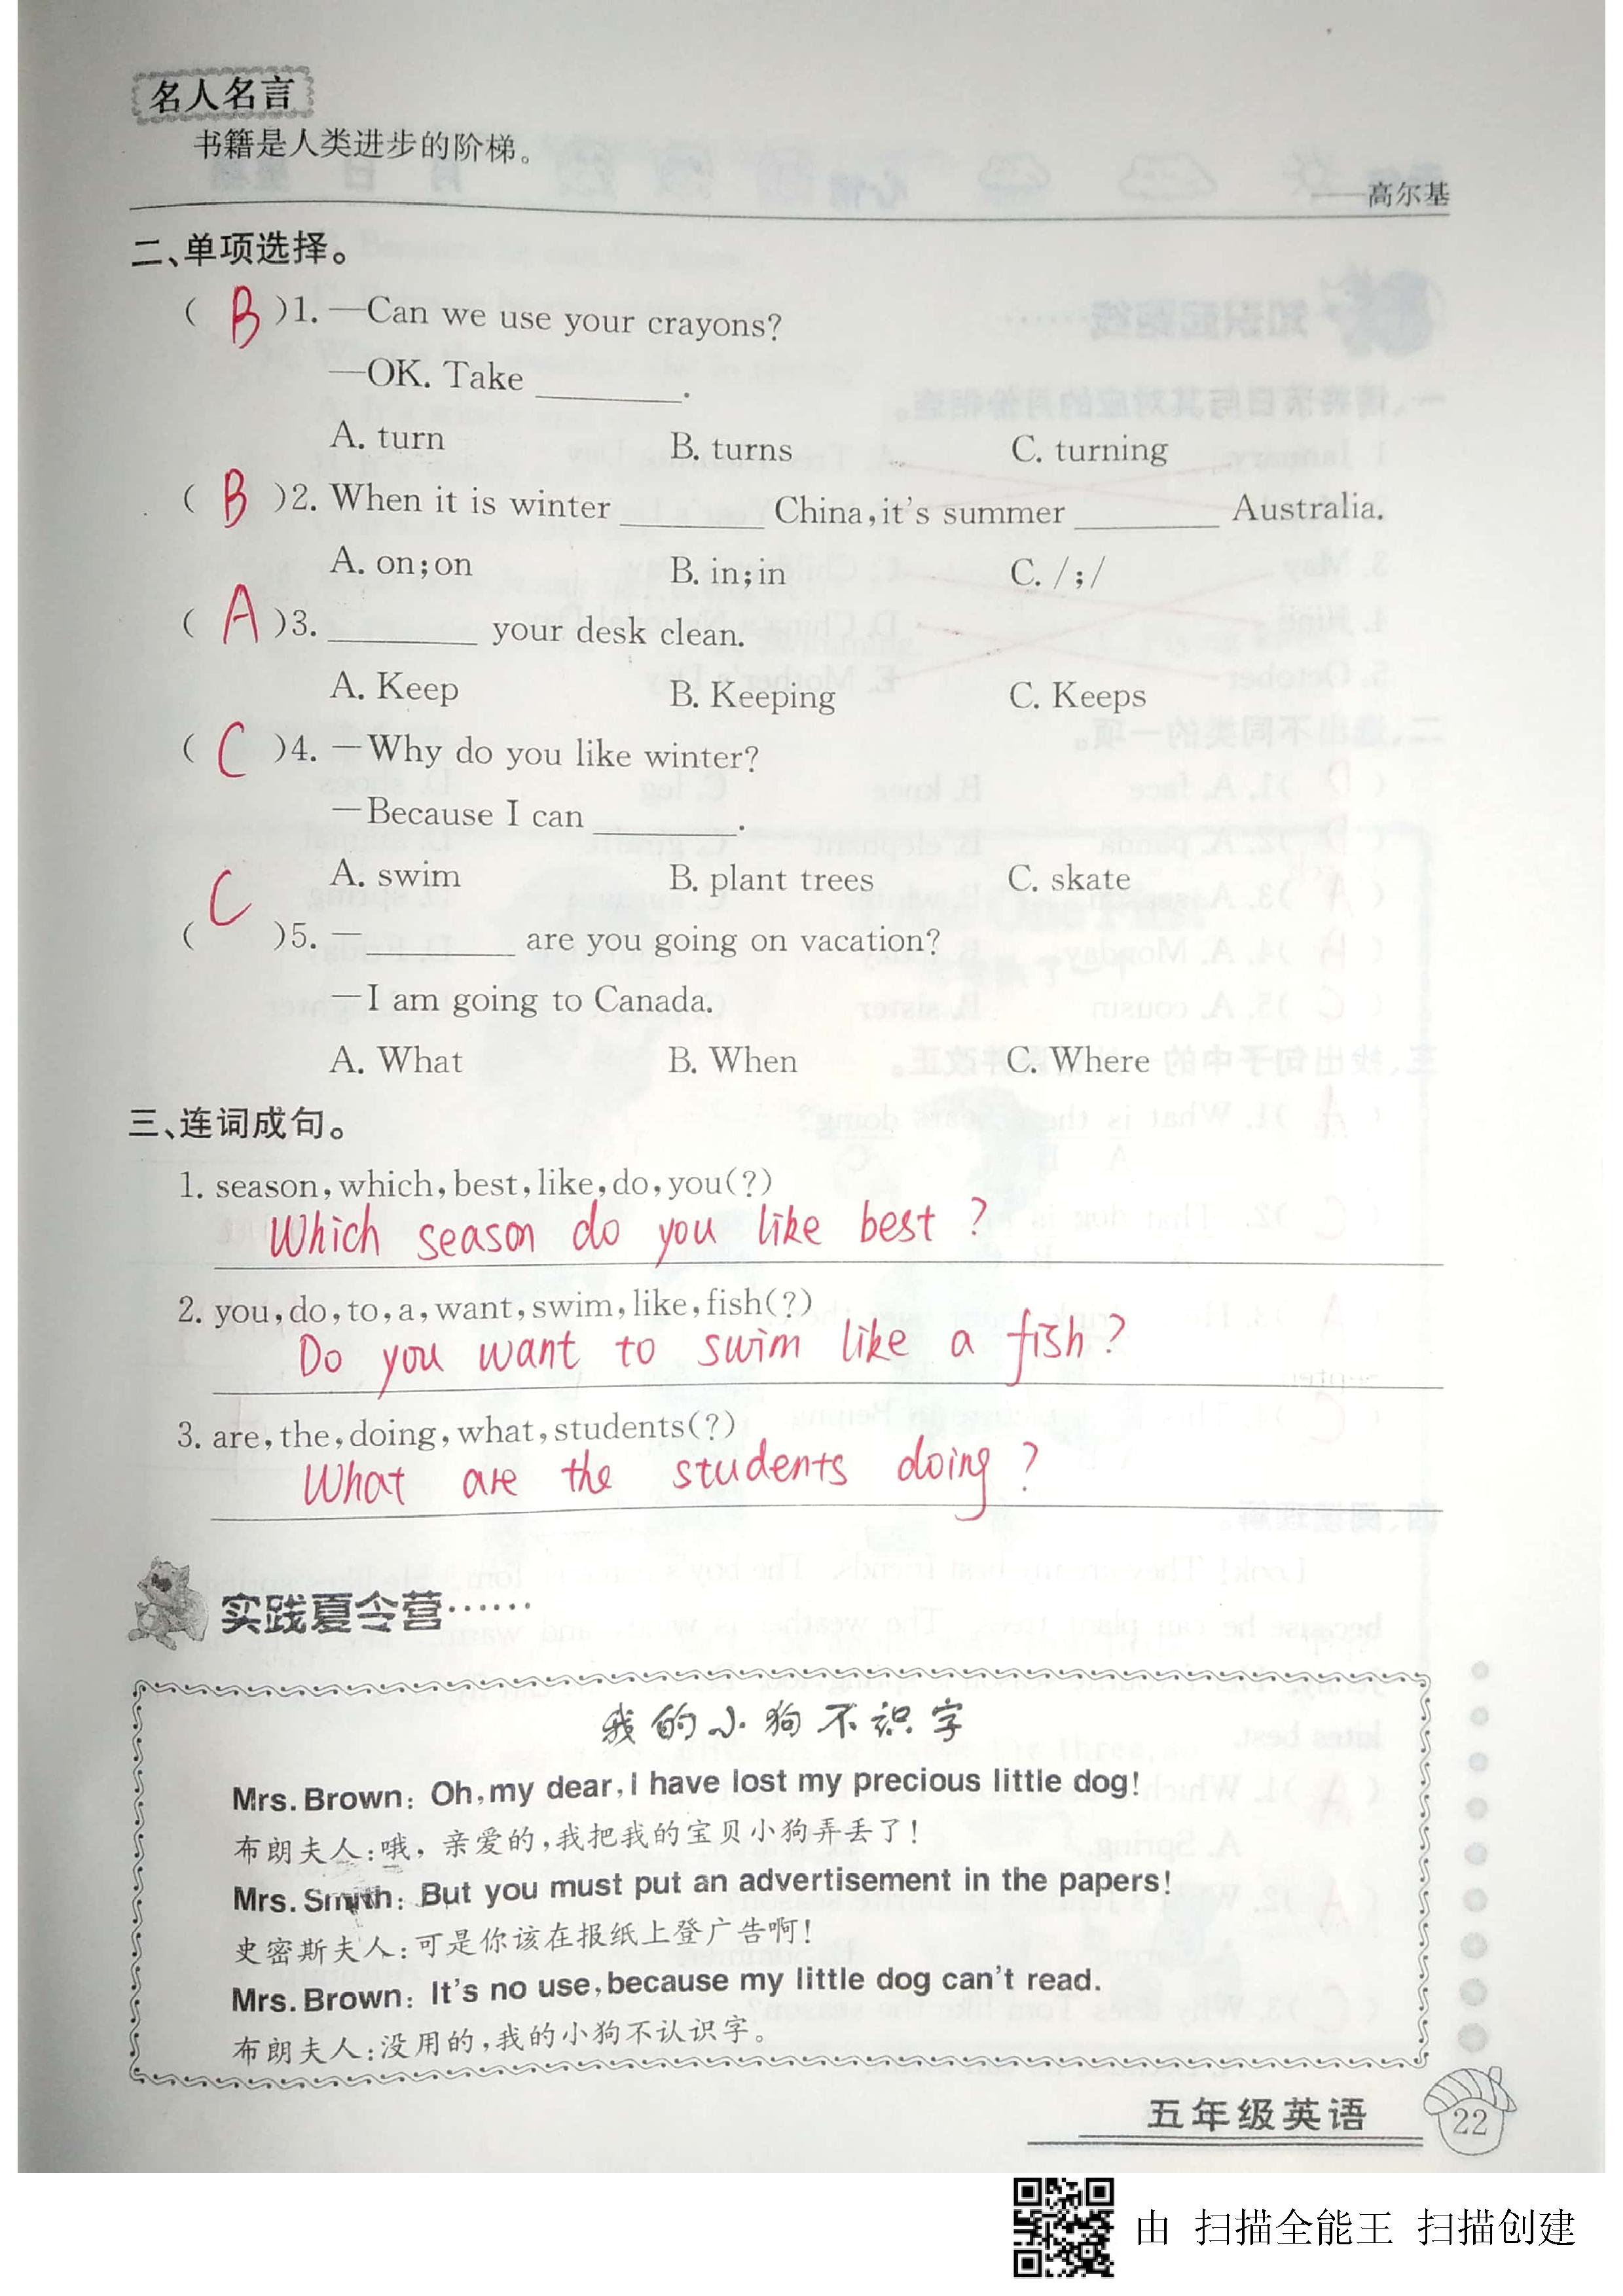 名人名言
书籍是人类进步的阶梯。
——高尔基
二、单项选择。
( B )1. —Can we use your crayons?
—OK. Take ________.
A. turn B. turns C. turning
( B )2. When it is winter ________ China,it's summer ________ Australia.
A. on;on B. in;in C. /;/
( A )3. ________ your desk clean.
A. Keep B. Keeping C. Keeps
( C )4. —Why do you like winter?
—Because I can ________.
A. swim B. plant trees C. skate
( C )5. —________ are you going on vacation?
—I am going to Canada.
A. What B. When C. Where
三、连词成句。
1. season,which,best,like,do,you(?)
Which season do you like best ?
2. you,do,to,a,want,swim,like,fish(?)
Do you want to swim like a fish ?
3. are,the,doing,what,students(?)
What are the students doing ?
实践夏令营……
我的小狗不识字
Mrs. Brown: Oh,my dear,I have lost my precious little dog!
布朗夫人:哦,亲爱的,我把我的宝贝小狗弄丢了!
Mrs. Smith: But you must put an advertisement in the papers!
史密斯夫人:可是你该在报纸上登广告啊!
Mrs. Brown: It's no use,because my little dog can't read.
布朗夫人:没用的,我的小狗不认识字。
五年级英语 22
由 扫描全能王 扫描创建